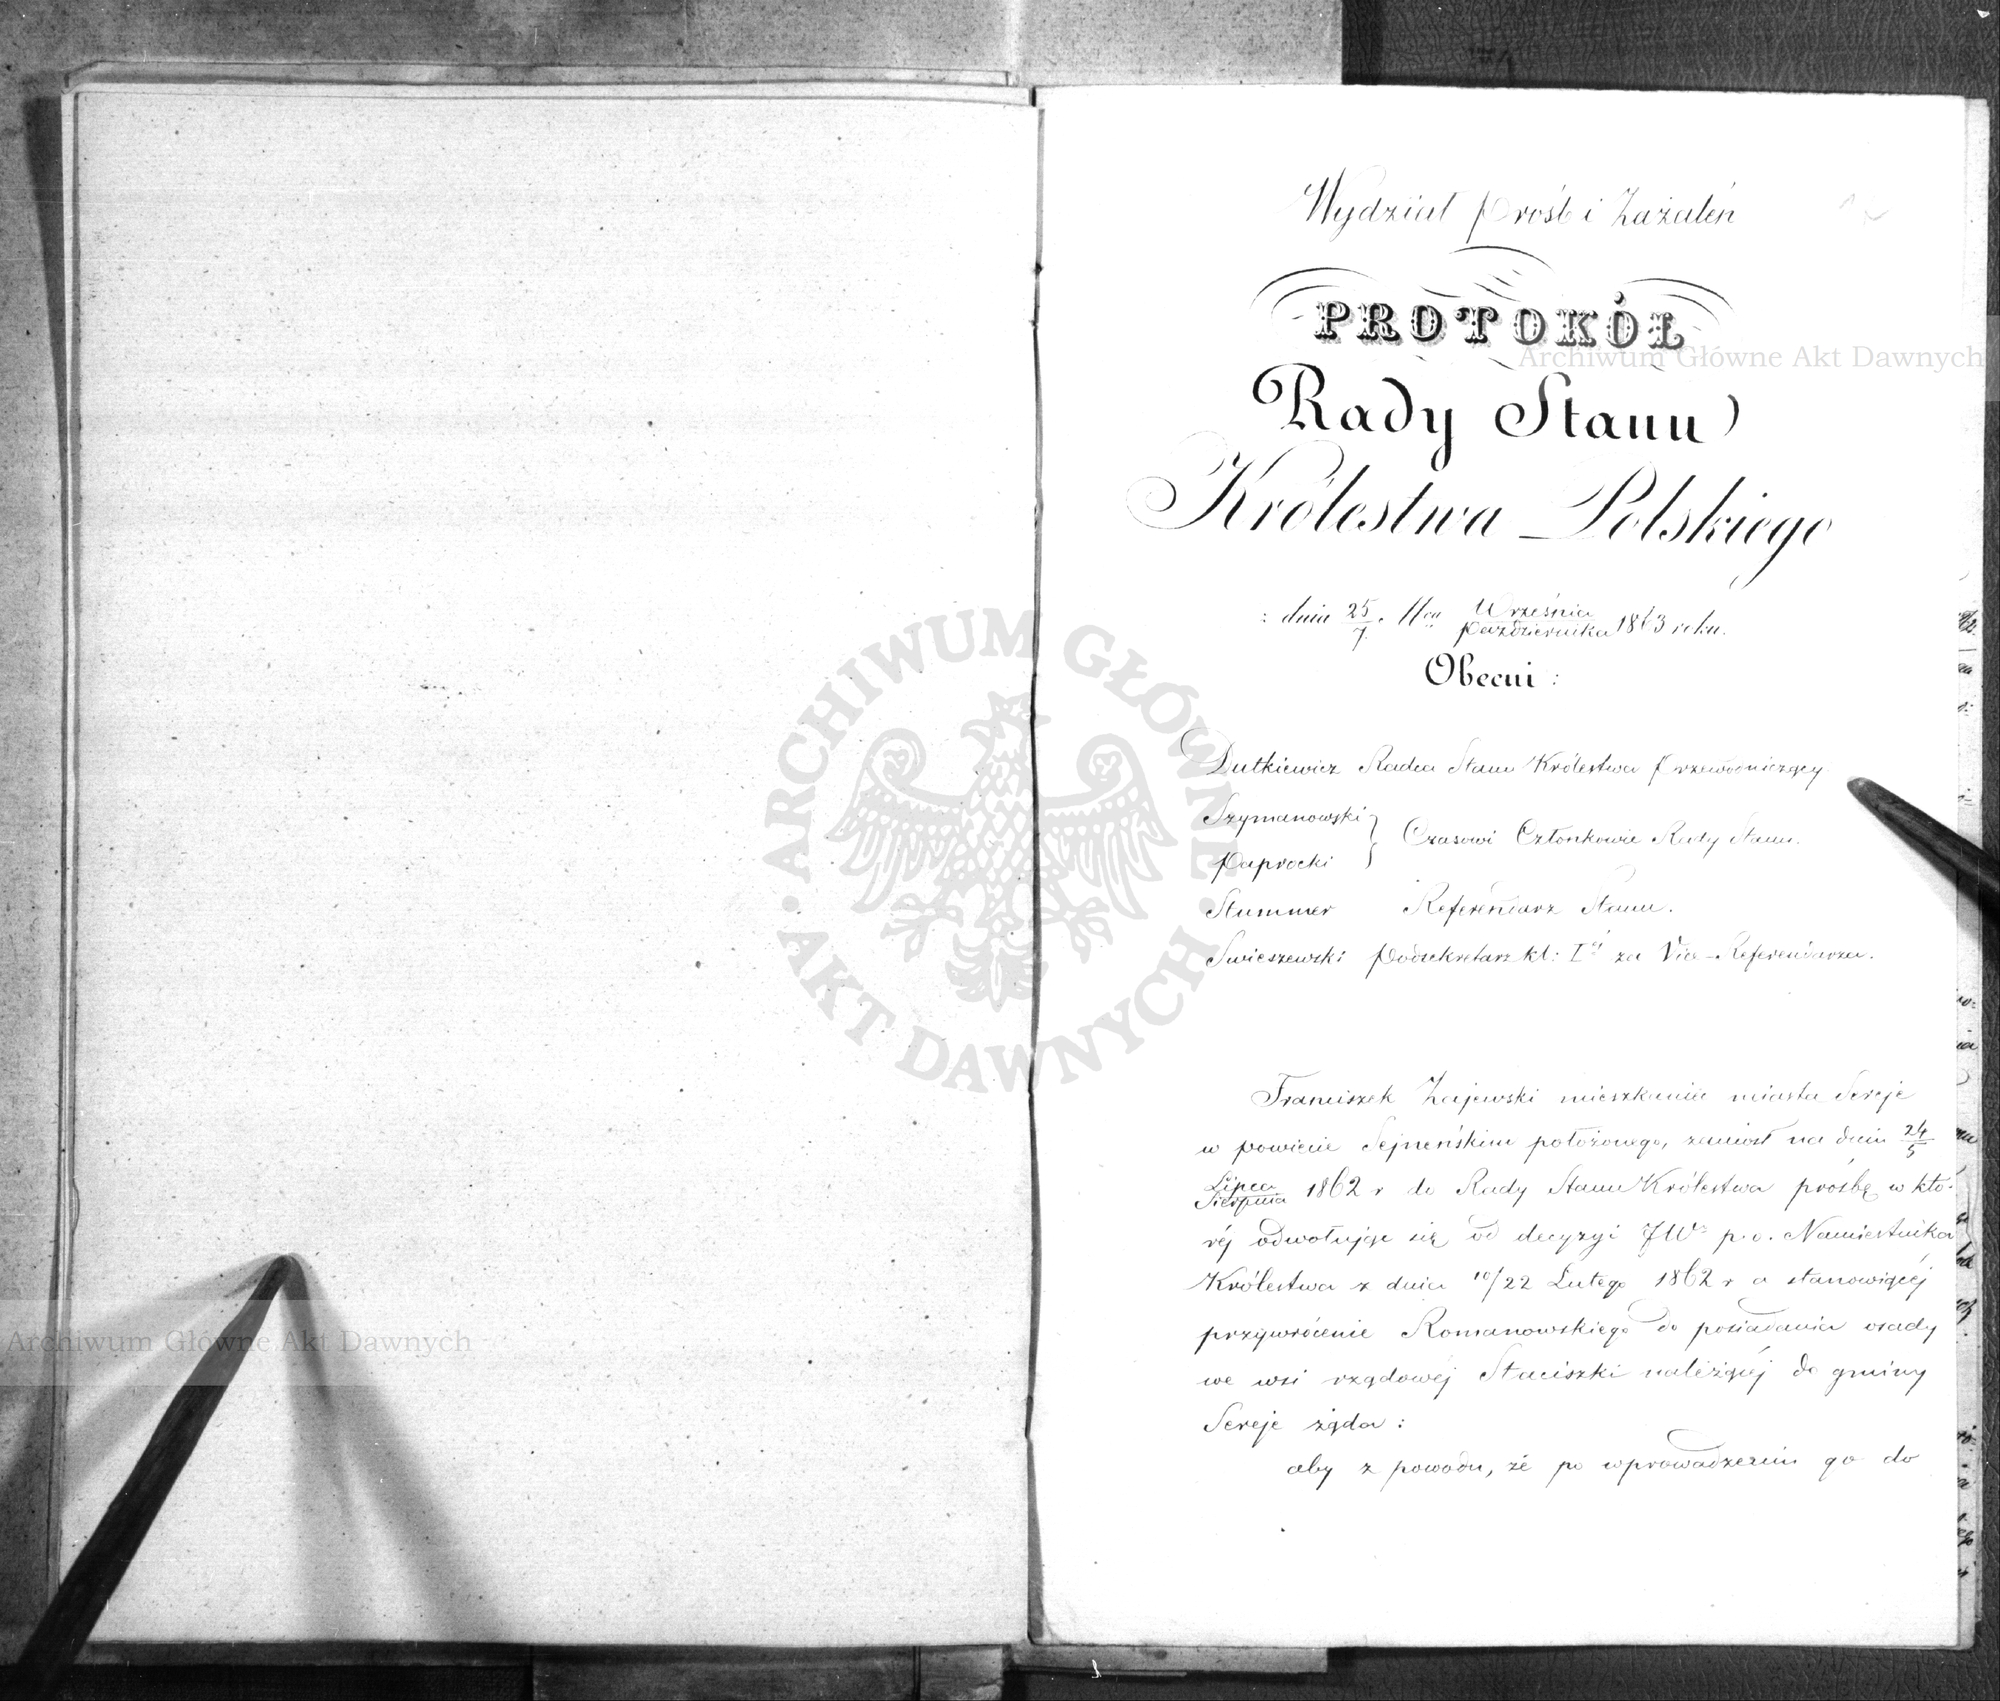 Wydział Próśb i Zażaleń
PROTOKÓŁ
Rady Stanu
Królestwa Polskiego
dnia 25/7 Września/Października 1863 roku.
Obecni:
Dutkiewicz Radca Stanu Królestwa Przewodniczący
Szymanowski
Paprocki } Czasowi Członkowie Rady Stanu.
Stummer Referendarz Stanu.
Swieszewski Podsekretarz kl: I za Vice-Referendarza.
Franciszek Zajewski mieszkaniec miasta Sereje
w powiecie Sejneńskim położonego, zaniósł na dniu 24/5
Lipca/Sierpnia 1862 r do Rady Stanu Królestwa prośbę w któ-
réj odwołując się od decyzyi JW p.o. Namiestnika
Królestwa z dnia 10/22 Lutego 1862 r a stanowiącéj
przywrócenie Romanowskiego do posiadania osady
we wsi rządowéj Staciszki należącéj do gminy
Sereje żąda:
aby z powodu, że po wprowadzeniu go do
ARCHIWUM GŁÓWNE AKT DAWNYCH
Archiwum Główne Akt Dawnych
Archiwum Główne Akt Dawnych